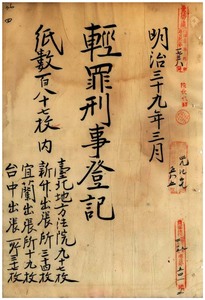 明治三十九年三月
輕罪刑事登記
紙數百八十七枚 內
臺北地方法院九十七枚
新竹出張所三十四枚
宜蘭出張所十九枚
台中出張所三十七枚